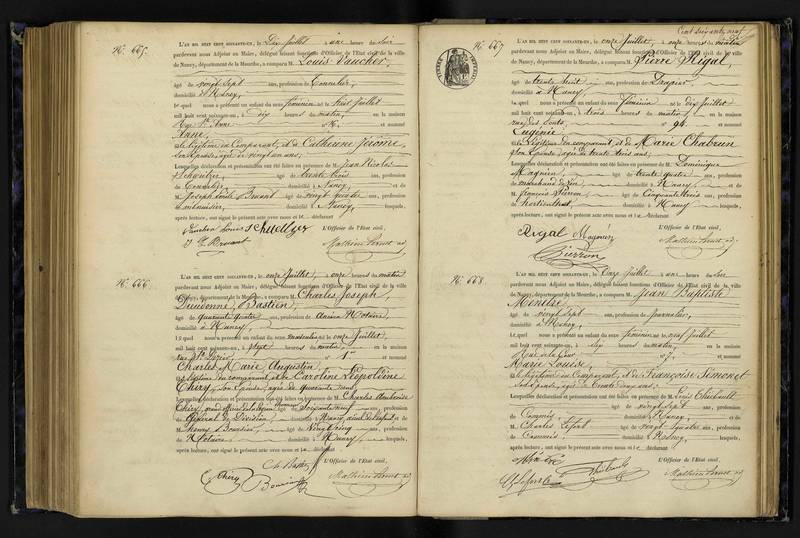 N.º 665.
L'AN MIL HUIT CENT SOIXANTE-UN, le Dix Juillet à une heure du Soir
pardevant nous Adjoint au Maire, délégué faisant fonctions d'Officier de l'État civil de la ville
de Nancy, département de la Meurthe, a comparu M. Louis Vaucher,
âgé de vingt sept ans, profession de Cordelier,
domicilié à Nancy,
lequel nous a présenté un enfant du sexe féminin né le huit Juillet
mil huit cent soixante-un, à dix heures du matin, en la maison
Rue Ste Anne n.º et nommé
Anne,
fille légitime du Comparant, et de Catherine Jérôme,
son épouse, âgée de vingt six ans;
Lesquelles déclaration et présentation ont été faites en présence de M. Jean Nicolas
Schveitzer, âgé de trente trois ans, profession
de Cordelier domicilié à Nancy, et de
M. Joseph âgé de vingt quatre ans, profession
domicilié à Nancy, lesquels,
après lecture, ont signé le présent acte avec nous et le déclarant
L'Officier de l'État civil,
N.º 666.
L'AN MIL HUIT CENT SOIXANTE-UN, le onze Juillet, à onze heures du matin
pardevant nous Adjoint au Maire, délégué faisant fonctions d'Officier de l'État civil de la ville
de Nancy, département de la Meurthe, a comparu M. Charles Joseph
Dieudonné Bastien,
âgé de Quarante quatre ans, profession de Ancien Notaire,
domicilié à Nancy,
lequel nous a présenté un enfant du sexe masculin né le onze Juillet,
mil huit cent soixante-un, à sept heures du matin, en la maison
rue St. n.º 1er et nommé
Charles Marie Augustin
fils légitime du comparant, et de Caroline Léopoldine
Chéry, son épouse, âgée de quarante ans;
Lesquelles déclaration et présentation ont été faites en présence de M. Charles Ambroise
Chéry, âgé de Soixante neuf ans, profession
de Général de Division,
M. Henry Boursier, âgé de ans, profession
de Notaire, domicilié à Nancy, lesquels,
après lecture, ont signé le présent acte avec nous et le déclarant
Ch. Bastien L'Officier de l'État civil,
Chéry Boursier
N.º 667
L'AN MIL HUIT CENT SOIXANTE-UN, le onze Juillet, à onze heures du matin
pardevant nous Adjoint au Maire, délégué faisant fonctions d'Officier de l'État civil de la ville
de Nancy, département de la Meurthe, a comparu M. Pierre Rigal,
âgé de trente huit ans, profession de Drapier,
domicilié à Nancy,
lequel nous a présenté un enfant du sexe féminin né le dix Juillet
mil huit cent soixante-un, à trois heures du matin, en la maison
rue des Ponts, n.º 94 et nommé
Eugénie
fille légitime du comparant, et de Marie Chabrun
son épouse, âgée de trente trois ans;
Lesquelles déclaration et présentation ont été faites en présence de M. Dominique
Magnien, âgé de trente quatre ans, profession
de marchand de vin, domicilié à Nancy, et de
M. François Pierron âgé de Cinquante trois ans, profession
de horticulteur, domicilié à Nancy lesquels,
après lecture, ont signé le présent acte avec nous et le déclarant
Rigal Magnien L'Officier de l'État civil,
Pierron
N.º 668.
L'AN MIL HUIT CENT SOIXANTE-UN, le Onze Juillet à une heure du Soir
pardevant nous Adjoint au Maire, délégué faisant fonctions d'Officier de l'État civil de la ville
de Nancy, département de la Meurthe, a comparu M. Jean Baptiste
âgé de vingt sept ans, profession de Journalier,
domicilié à Nancy,
lequel nous a présenté un enfant du sexe féminin né le neuf Juillet
mil huit cent soixante-un, à Six heures du matin, en la maison
n.º 7 et nommé
Marie Louise,
fille légitime du Comparant, et de Françoise Simonet
son épouse, âgée de trente cinq ans;
Lesquelles déclaration et présentation ont été faites en présence de M. Louis Thiébault
âgé de vingt sept ans, profession
de Commis, domicilié à Nancy, et de
M. Charles âgé de vingt quatre ans, profession
de Commis, domicilié à Nancy, lesquels,
après lecture, ont signé le présent acte avec nous et le déclarant
L'Officier de l'État civil,